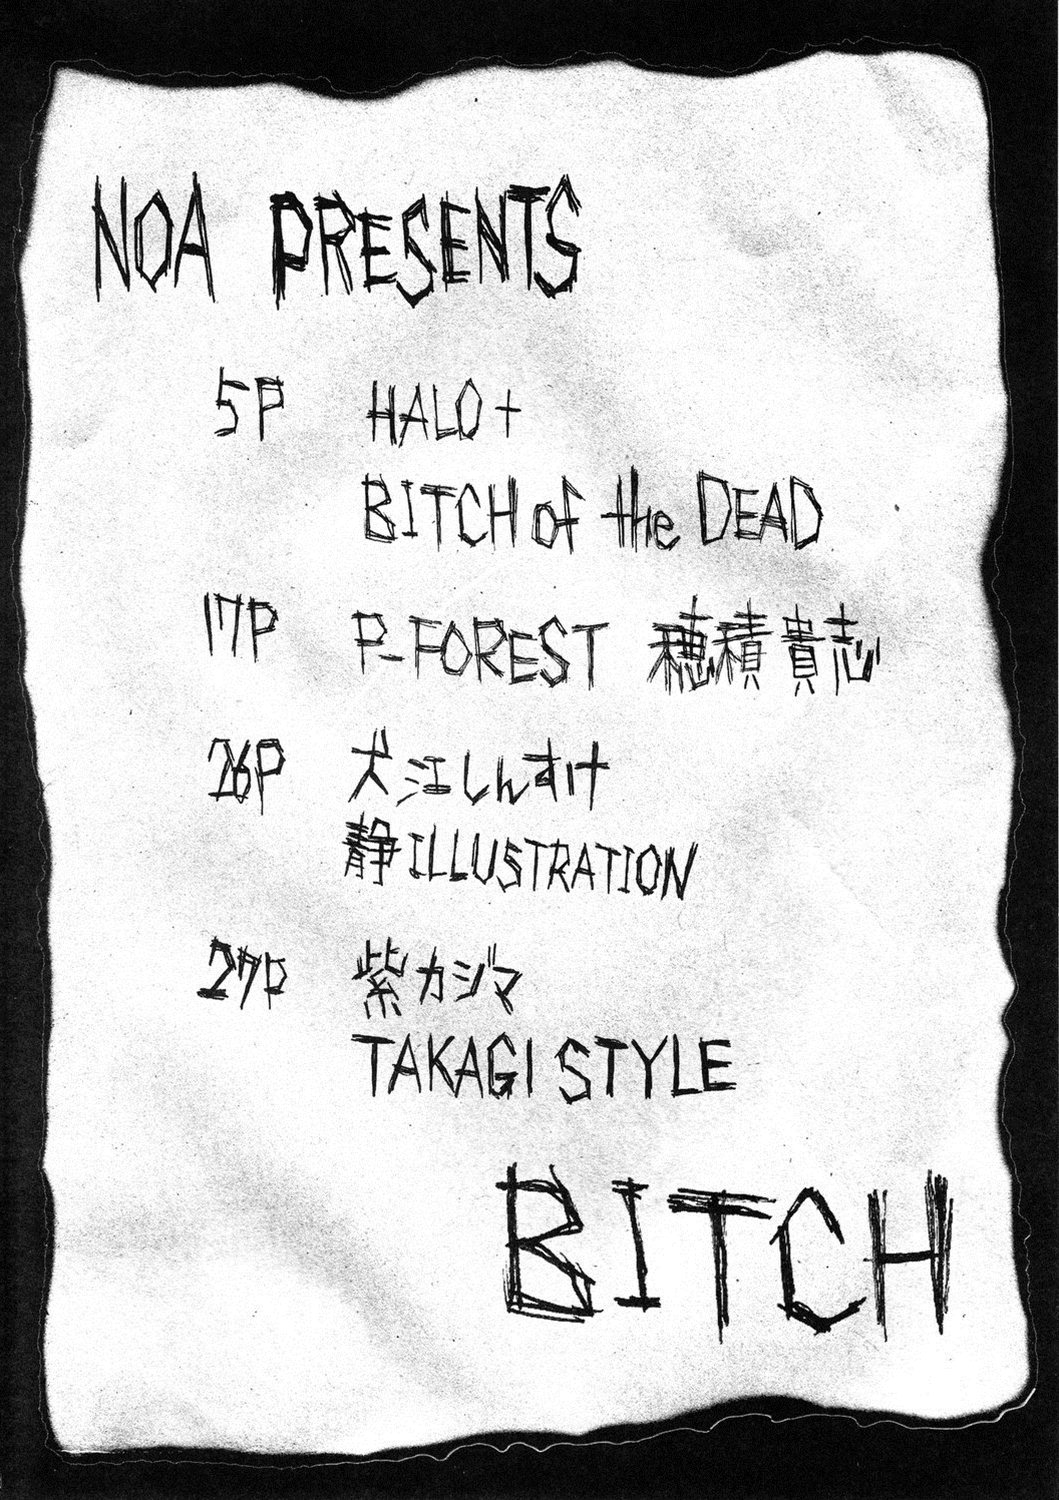 NOA PRESENTS
5P HALO+
BITCH of the DEAD
17P P-FOREST 穂積貴志
26P 犬江しんすけ
静ILLUSTRATION
27P 紫カジマ
TAKAGI STYLE
BITCH